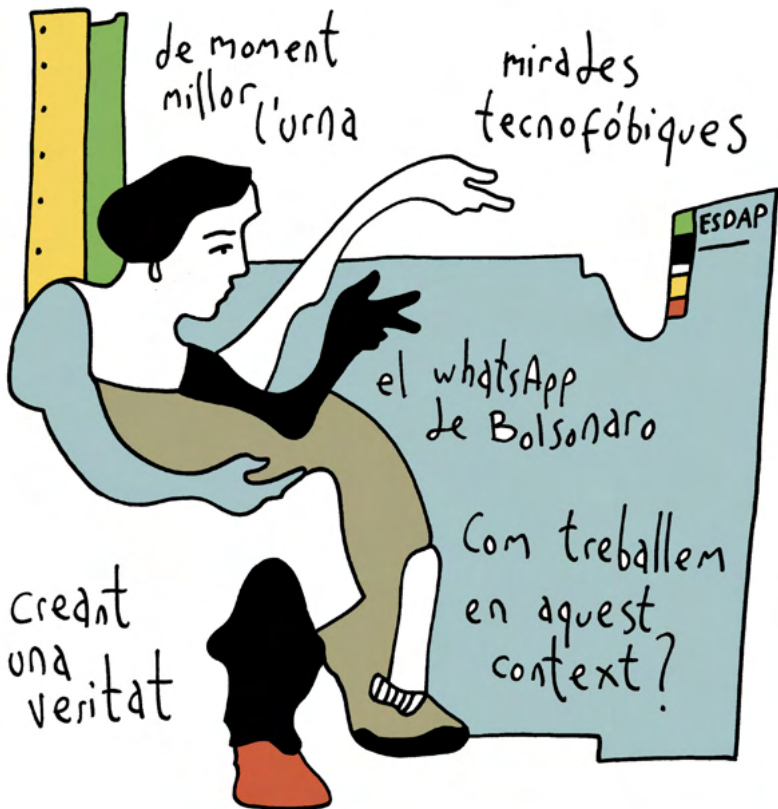 de moment
millor
l'urna
mirades
tecnofóbiques
ESDAP
el whatsApp
de Bolsonaro
Com treballem
en aquest
context?
creant
una
veritat